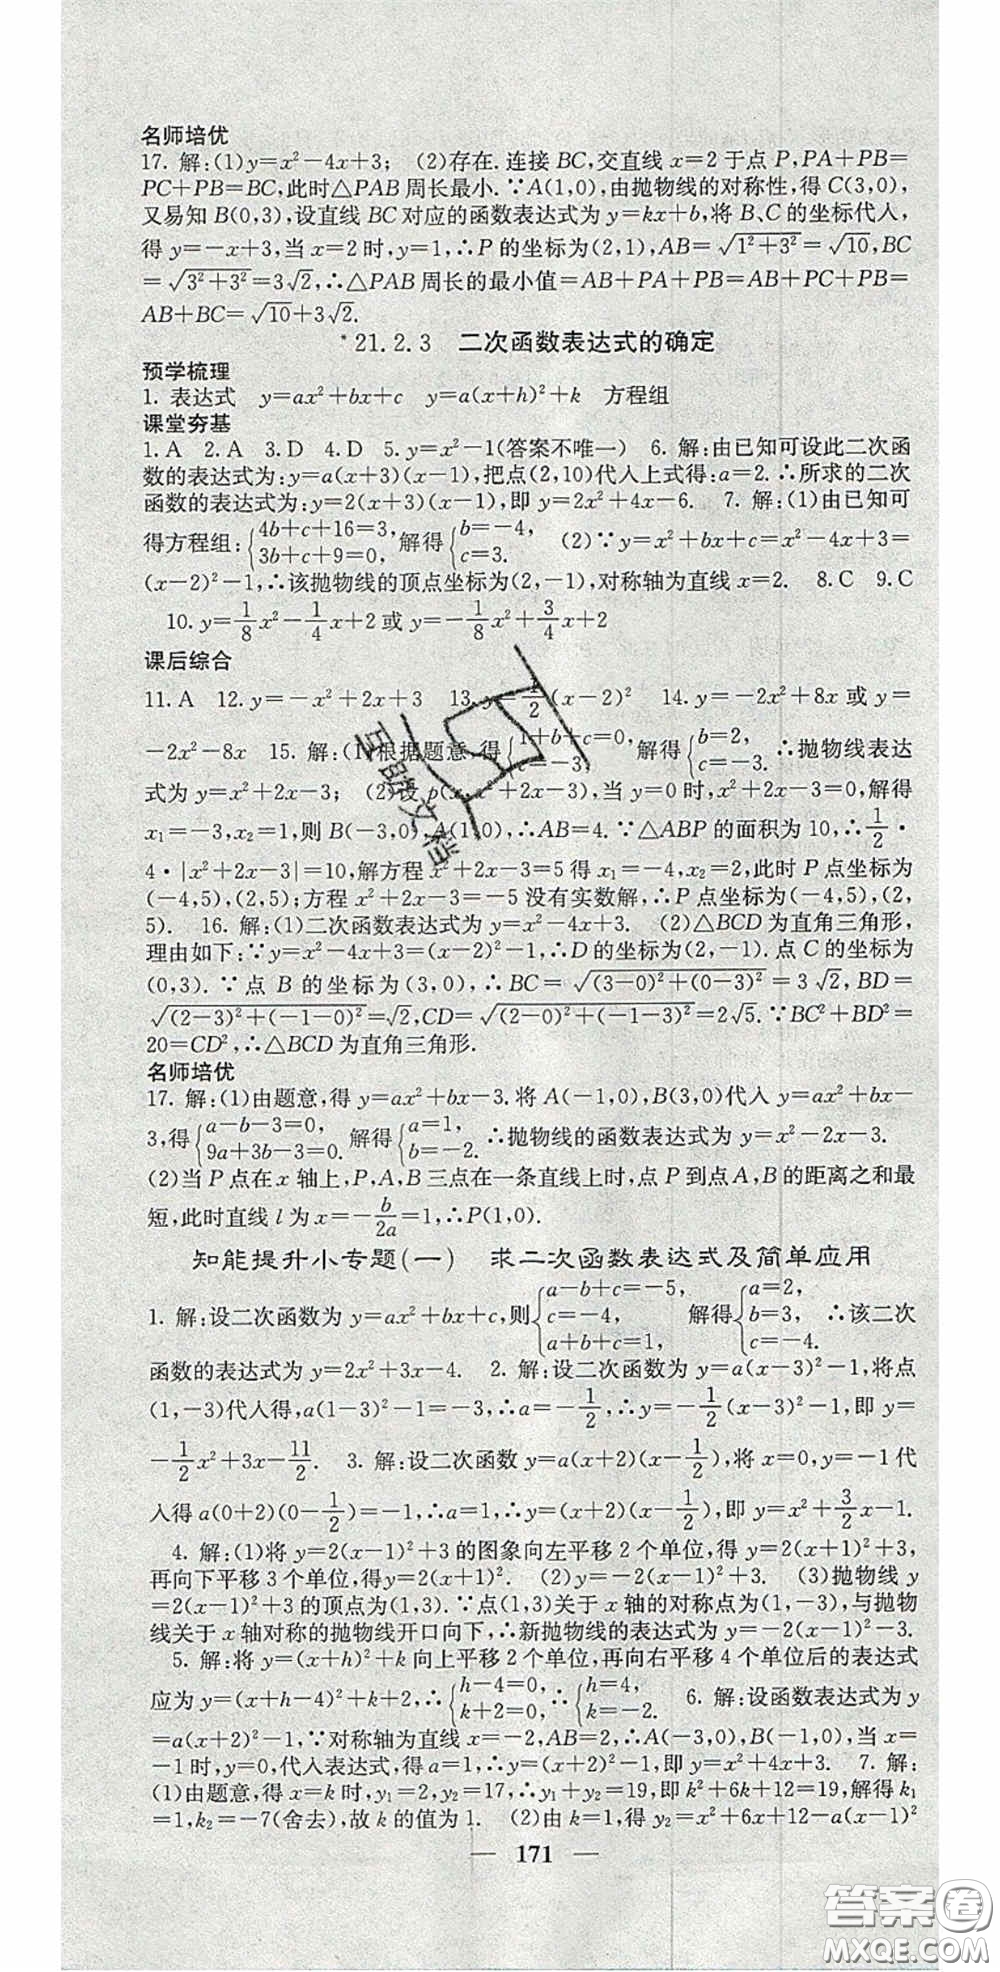 名师培优
17. 解:(1)y=x²-4x+3; (2)存在.连接 BC,交直线 x=2 于点 P,PA+PB=
PC+PB=BC,此时△PAB 周长最小.∵A(1,0),由抛物线的对称性,得 C(3,0),
又易知 B(0,3),设直线 BC 对应的函数表达式为 y=kx+b,将 B、C 的坐标代入,
得 y=-x+3,当 x=2 时,y=1,∴P 的坐标为(2,1),AB=√(1²+3²)=√10,BC
=√(3²+3²)=3√2,∴△PAB 周长的最小值=AB+PA+PB=AB+PC+PB=
AB+BC=√10+3√2.
*21.2.3 二次函数表达式的确定
预学梳理
1. 表达式 y=ax²+bx+c y=a(x+h)²+k 方程组
课堂夯基
1. A 2. A 3. D 4. D 5. y=x²-1(答案不唯一) 6. 解:由已知可设此二次函
数的表达式为:y=a(x+3)(x-1),把点(2,10)代入上式得:a=2.∴所求的二次
函数的表达式为:y=2(x+3)(x-1),即 y=2x²+4x-6. 7. 解:(1)由已知可
得方程组:{4b+c+16=3, 3b+c+9=0, 解得{b=-4, c=3. (2)∵y=x²+bx+c=x²-4x+3=
(x-2)²-1,∴该抛物线的顶点坐标为(2,-1),对称轴为直线 x=2. 8. C 9. C
10. y=1/8x²-1/4x+2 或 y=-1/8x²+3/4x+2
课后综合
11. A 12. y=-x²+2x+3 13. y=1/2(x-2)² 14. y=-2x²+8x 或 y=
-2x²-8x 15. 解:(1)根据题意,得{1+b+c=0, c=-3, 解得{b=2, c=-3. ∴抛物线表达
式为 y=x²+2x-3; (2)设 p(x,x²+2x-3),当 y=0 时,x²+2x-3=0,解得
x₁=-3,x₂=1,则 B(-3,0),A(1,0),∴AB=4.∵△ABP 的面积为 10,∴1/2·
4·|x²+2x-3|=10,解方程 x²+2x-3=5 得 x₁=-4,x₂=2,此时 P 点坐标为
(-4,5),(2,5);方程 x²+2x-3=-5 没有实数解,∴P 点坐标为(-4,5),(2,
5). 16. 解:(1)二次函数表达式为 y=x²-4x+3. (2)△BCD 为直角三角形,
理由如下:∵y=x²-4x+3=(x-2)²-1,∴D 的坐标为(2,-1).点 C 的坐标为
(0,3).∵点 B 的坐标为(3,0),∴BC=√((3-0)²+(0-3)²)=3√2,BD=
√((2-3)²+(-1-0)²)=√2,CD=√((2-0)²+(-1-3)²)=2√5.∵BC²+BD²=
20=CD²,∴△BCD 为直角三角形.
名师培优
17. 解:(1)由题意,得 y=ax²+bx-3.将 A(-1,0),B(3,0)代入 y=ax²+bx-
3,得{a-b-3=0, 9a+3b-3=0. 解得{a=1, b=-2. ∴抛物线的函数表达式为 y=x²-2x-3.
(2)当 P 点在 x 轴上,P,A,B 三点在一条直线上时,点 P 到点 A,B 的距离之和最
短,此时直线 l 为 x=-b/2a=1,∴P(1,0).
知能提升小专题(一) 求二次函数表达式及简单应用
1. 解:设二次函数为 y=ax²+bx+c,则{a-b+c=-5, c=-4, a+b+c=1, 解得{a=2, b=3, c=-4. ∴该二次
函数的表达式为 y=2x²+3x-4. 2. 解:设二次函数为 y=a(x-3)²-1,将点
(1,-3)代入得,a(1-3)²-1=-3,∴a=-1/2,∴y=-1/2(x-3)²-1,即 y=
-1/2x²+3x-11/2. 3. 解:设二次函数 y=a(x+2)(x-1/2),将 x=0,y=-1 代
入得 a(0+2)(0-1/2)=-1,∴a=1,∴y=(x+2)(x-1/2),即 y=x²+3/2x-1.
4. 解:(1)将 y=2(x-1)²+3 的图象向左平移 2 个单位,得 y=2(x+1)²+3,
再向下平移 3 个单位,得y=2(x+1)². (2)y=-2(x-1)²+3. (3)抛物线 y
=2(x-1)²+3 的顶点为(1,3).∵点(1,3)关于 x 轴的对称点为(1,-3),与抛物
线关于 x 轴对称的抛物线开口向下,∴新抛物线的表达式为 y=-2(x-1)²-3.
5. 解:将 y=(x+h)²+k 向上平移 2 个单位,再向右平移 4 个单位后的表达式
应为 y=(x+h-4)²+k+2,∴{h-4=0, k+2=0, ∴{h=4, k=-2. 6. 解:设函数表达式为 y
=a(x+2)²-1,∵对称轴为直线 x=-2,AB=2,∴A(-3,0),B(-1,0),当 x=
-1 时,y=0,代入表达式,得 a=1,∴y=(x+2)²-1,即 y=x²+4x+3. 7. 解:
(1)由题意,得 x=k 时,y₁=2,y₂=17,∴y₁+y₂=19,即 k²+6k+12=19,解得 k₁
=1,k₂=-7(舍去),故 k 的值为 1. (2)由 k=1,得 y₂=x²+6x+12-a(x-1)²
— 171 —
答案卷
MXQE.COM